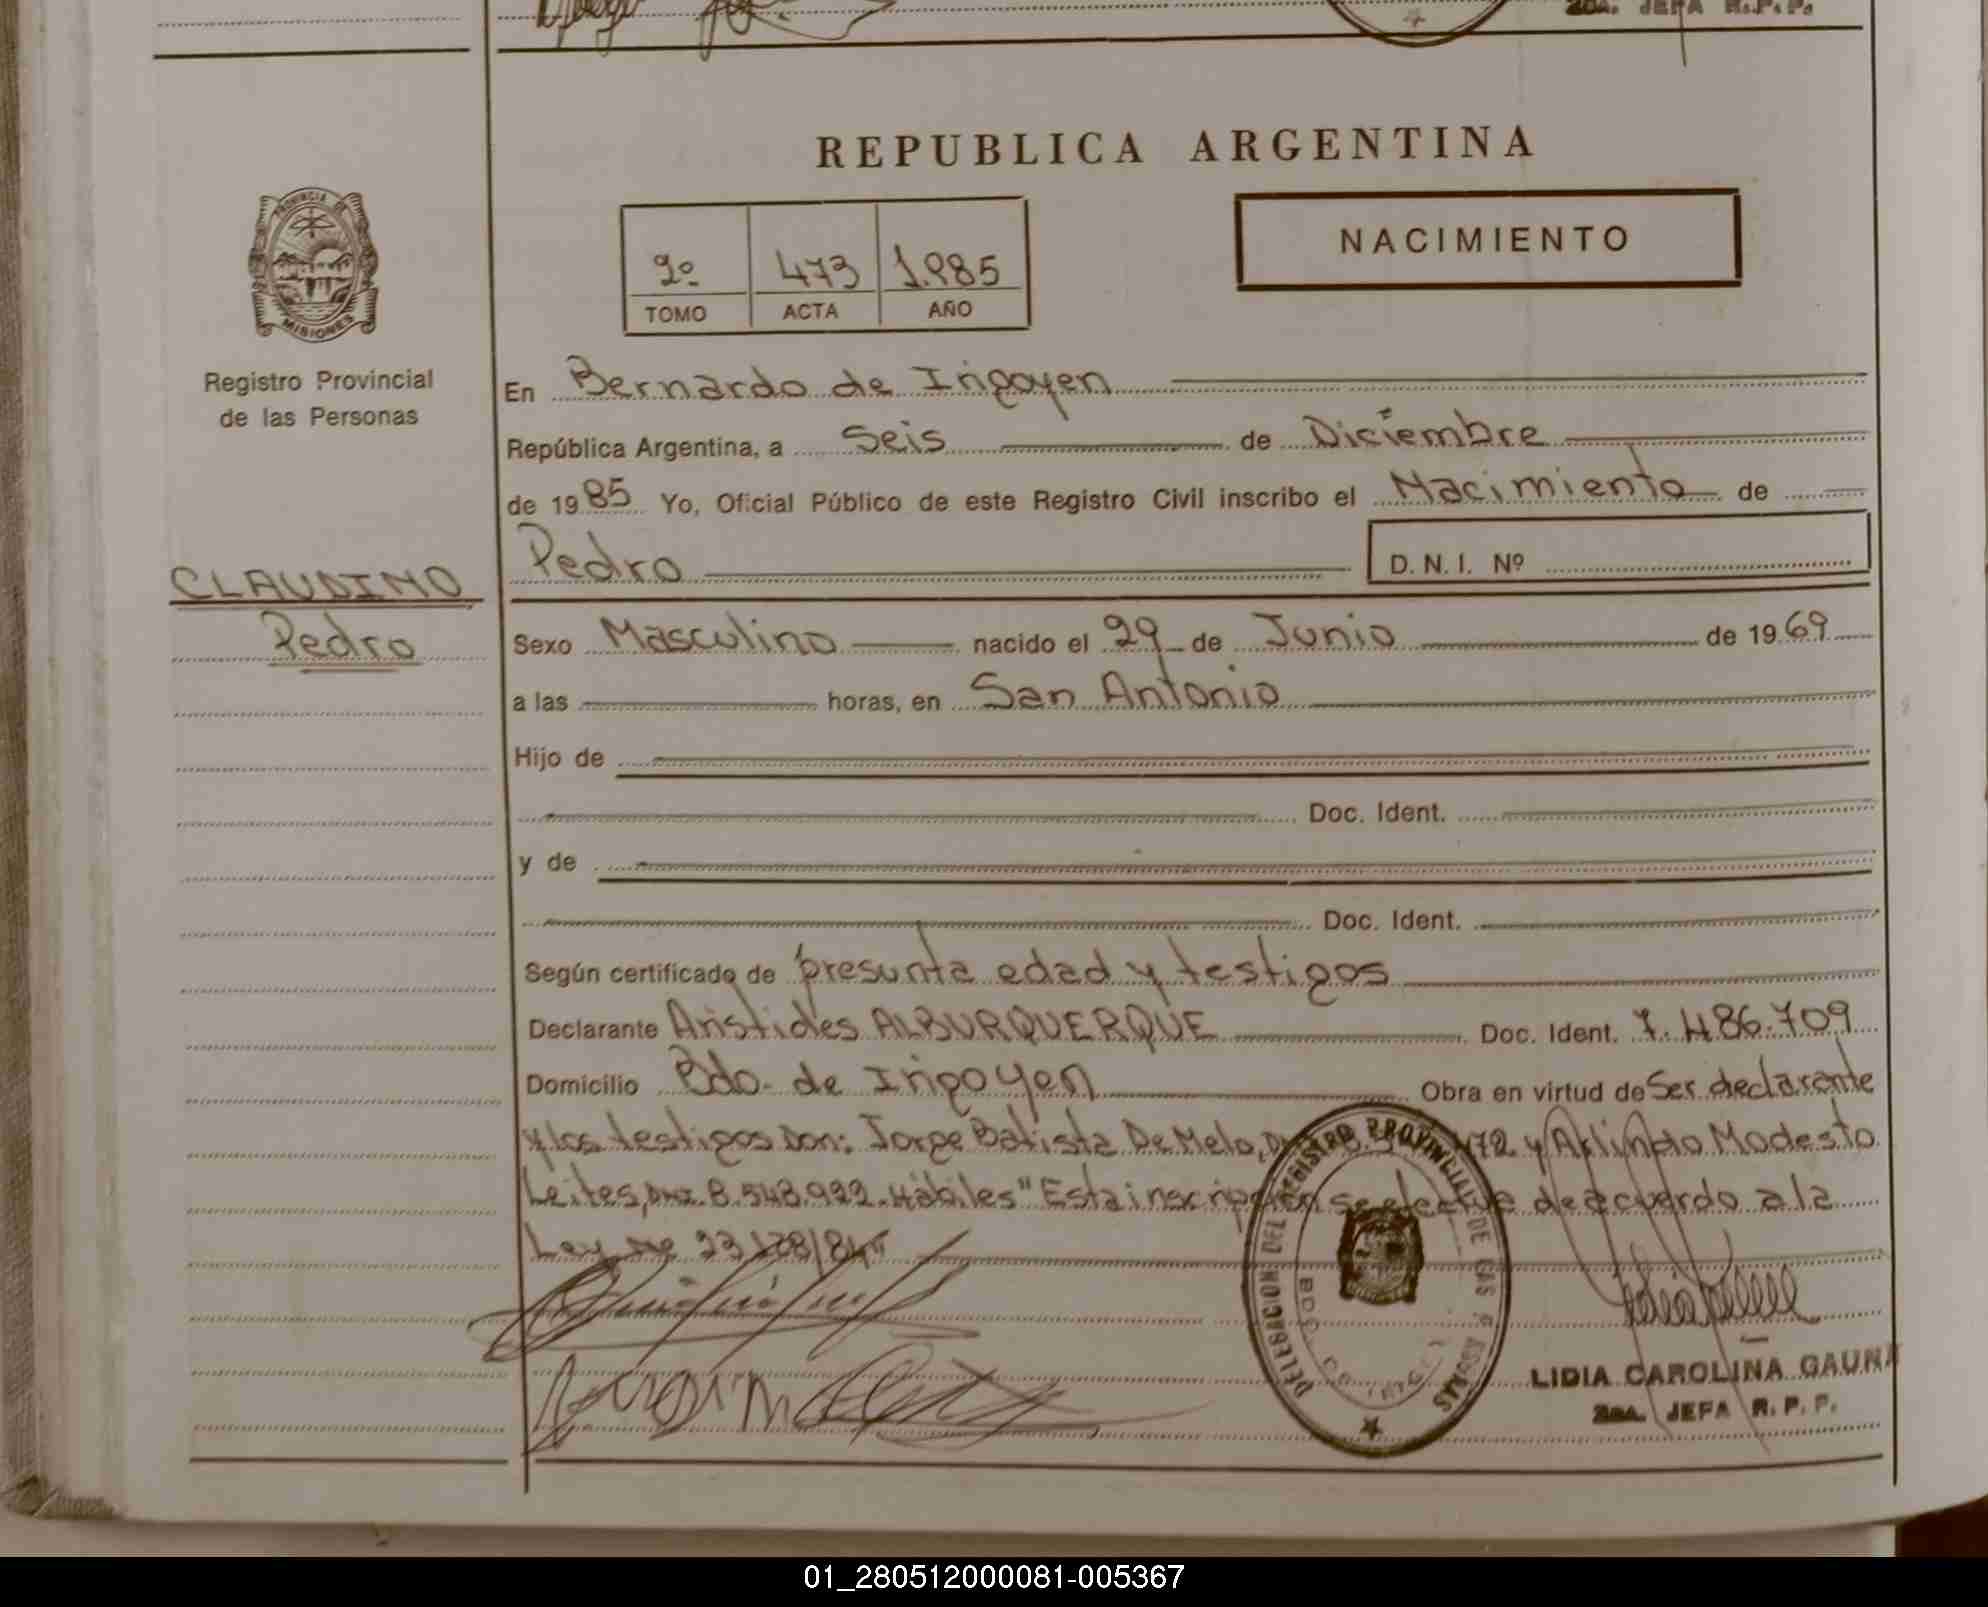 2DA. JEFA R.P.P.
REPUBLICA ARGENTINA
PROVINCIA DE
MISIONES
Registro Provincial
de las Personas
2º 473 1.985
TOMO ACTA AÑO
NACIMIENTO
En Bernardo de Irigoyen
República Argentina, a Seis de Diciembre
de 1985 Yo, Oficial Público de este Registro Civil inscribo el Nacimiento de
Pedro D. N. I. Nº
CLAUDINO
Pedro
Sexo Masculino nacido el 29 de Junio de 1969
a las horas, en San Antonio
Hijo de
Doc. Ident.
y de
Doc. Ident.
Según certificado de presunta edad y testigos
Declarante Aristides ALBURQUERQUE Doc. Ident. 7.486.709
Domicilio Bdo. de Irigoyen Obra en virtud de Ser declarante
y los testigos Don: Jorge Batista De Melo, y Arlindo Modesto
Leites, DNI 8.548.922. Hábiles" Esta inscripción se efectua de acuerdo a la
Ley Nº
DELEGACION DEL REGISTRO PROVINCIAL DE LAS PERSONAS
LIDIA CAROLINA GAUNA
2DA. JEFA R. P. P.
01_280512000081-005367